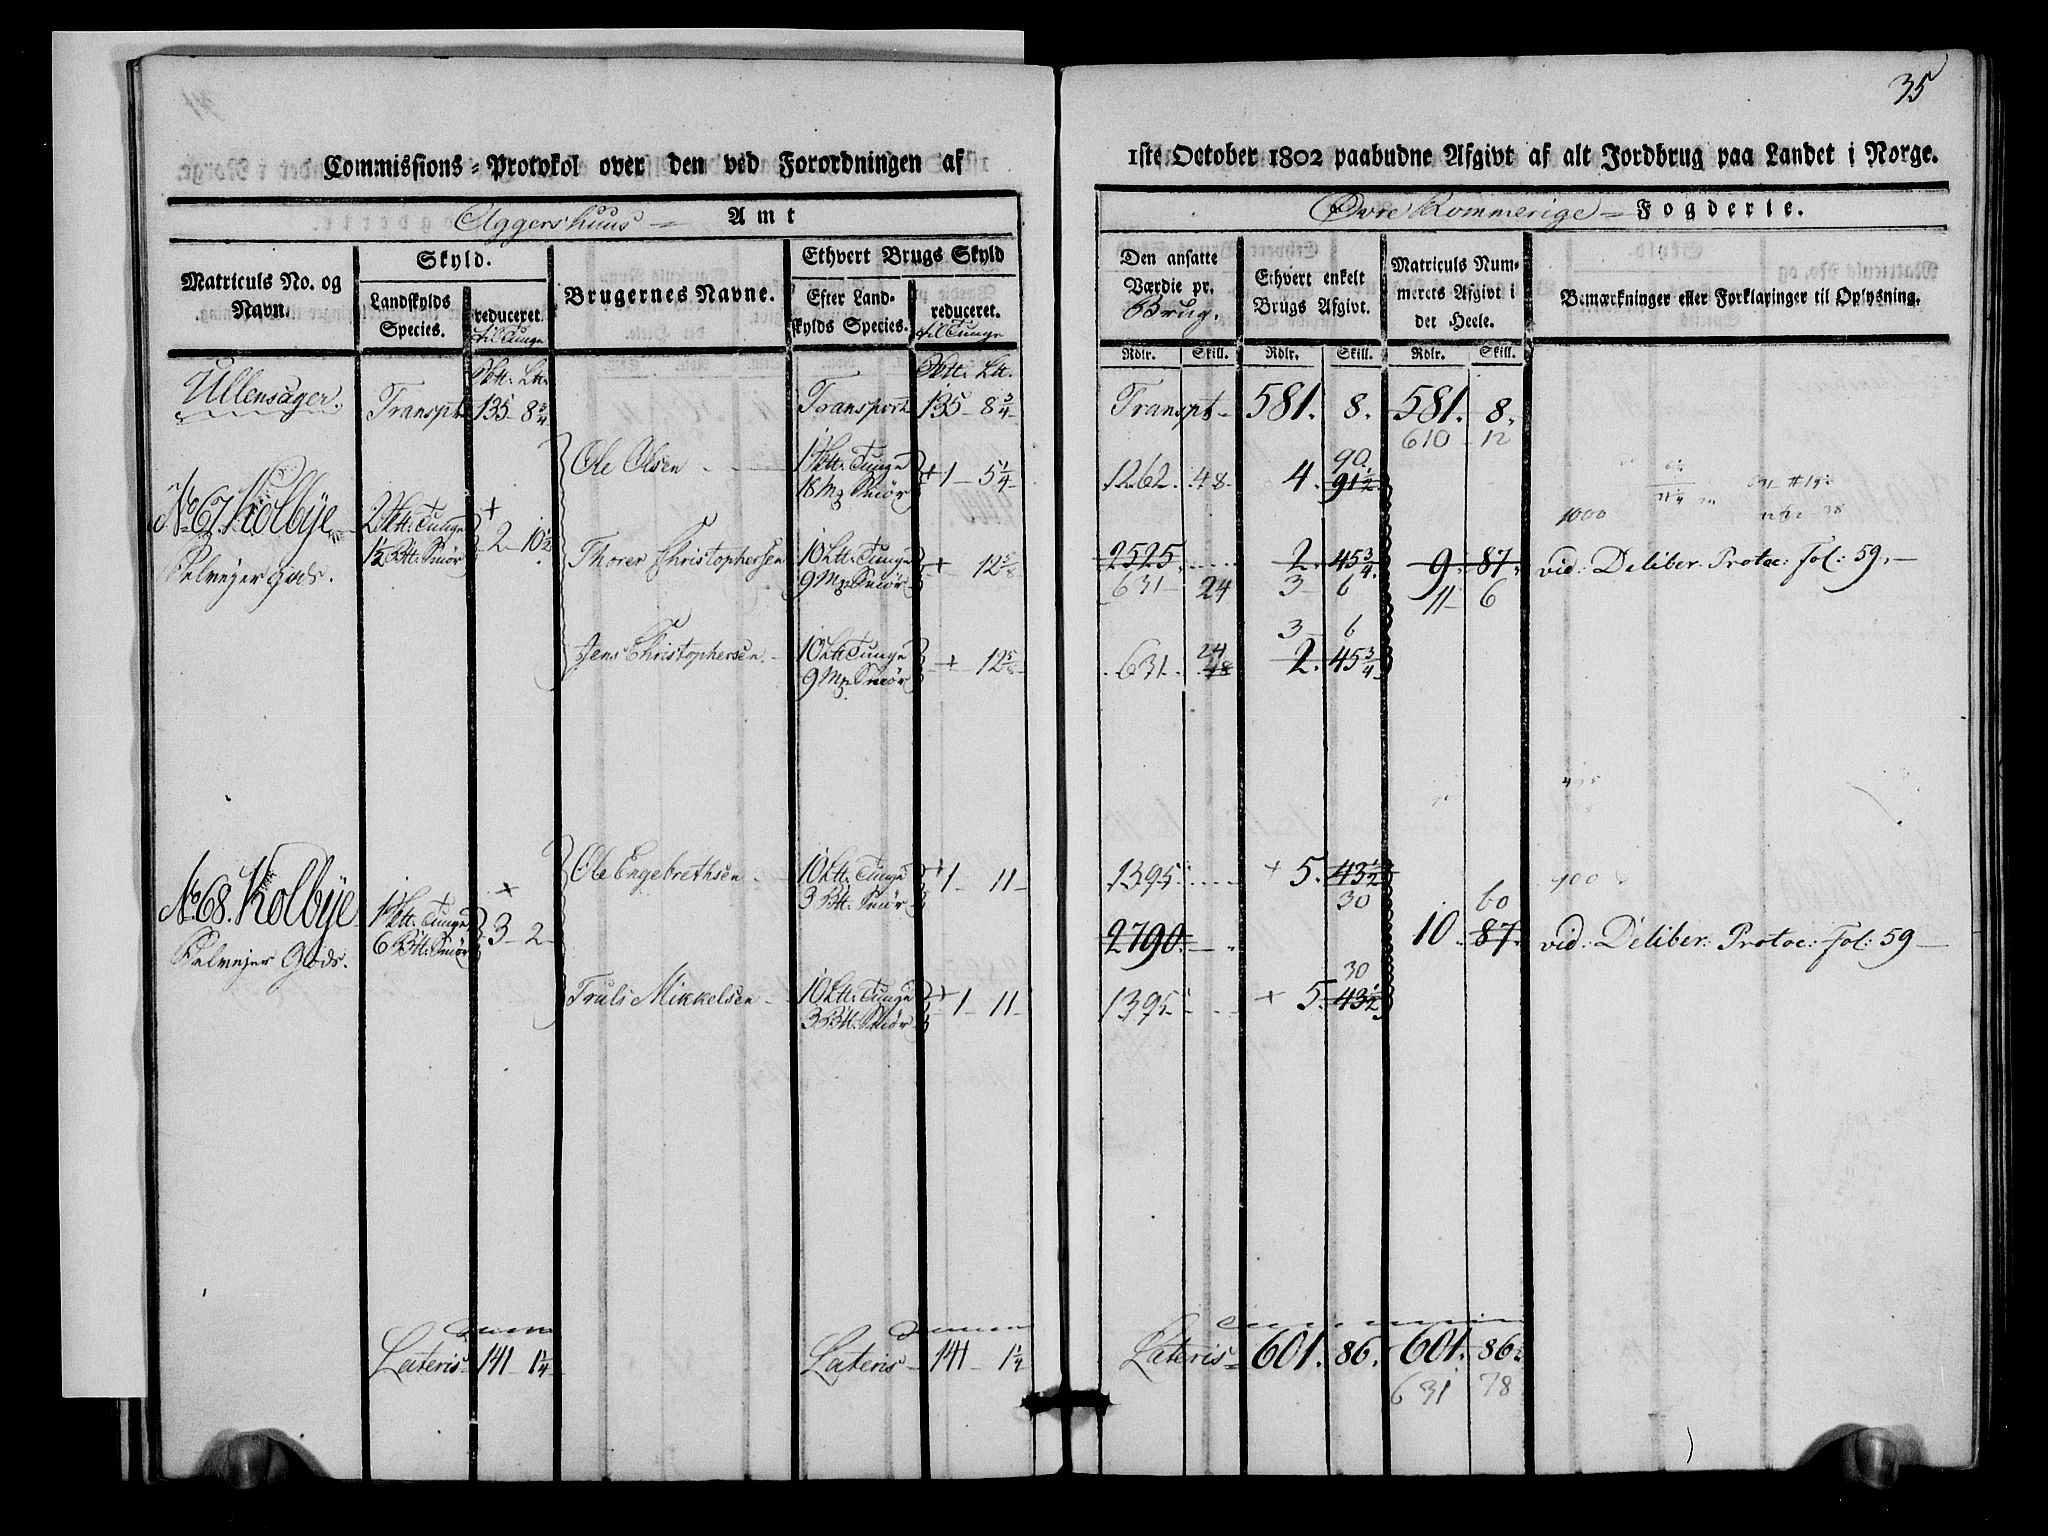 35
Commissions-Protokol over den ved Forordningen af
1ste October 1802 paabudne Afgivt af alt Jordbrug paa Landet i Norge.
Aggershuus Amt
Øvre Rommerige Fogderie.
Matriculs No. og Navn.
Skyld.
Landskylds Species.
reduceret. til Tunge
Brugernes Navne.
Ethvert Brugs Skyld
Efter Landskylds Species.
reduceret. til Tunge
Den ansatte Værdie pr. Brug.
Ethvert enkelt Brugs Afgivt.
Matriculs Nummerets Afgivt i det Heele.
Bemærkninger eller Forklaringer til Oplysning.
Rdlr. Skill. Rdlr. Skill. Rdlr. Skill.
Ullensager. Transpt 135 - 8 3/4 Transport 135 - 8 3/4 Transpt 581. 8. 581. 8.
610 - 12
Ole Olsen 1 Tunge + 1 - 5 1/4 1262. 48 4. 91 1/2 90.
18 Mg Smør
No 67. Kolbye 2 Tunge + 2 - 10 1/2
1 1/2 Smør
Selvejer Gods.
Thorer Christophersen 10 Tunge + - 12 5/8 2525 2. 45 3/4 9. 87. vid: Deliber: Protoc: Fol: 59.
9 Mg Smør 631 24 3 6 11 6
3 6
Jens Christophersen. 10 Tunge + - 12 5/8 631. 48 24 2. 45 3/4
9 Mg Smør
1000
Ole Engebrethsen 10 Tunge + 1 - 11 1395 + 5. 43 1/2
3 Smør 30
No 68. Kolbye 1 Tunge + 3 - 2
6 Smør 2790. 10. 87. 60 vid: Deliber: Protoc: Fol: 59
Selvejer Gods.
Truls Mikkelsen 10 Tunge + 1 - 11 1395 + 5. 43 1/2 30
3 Smør
Lateris 141 1 1/4 Lateris 141 1 1/4 Lateris 601. 86. 601. 86.
631 78